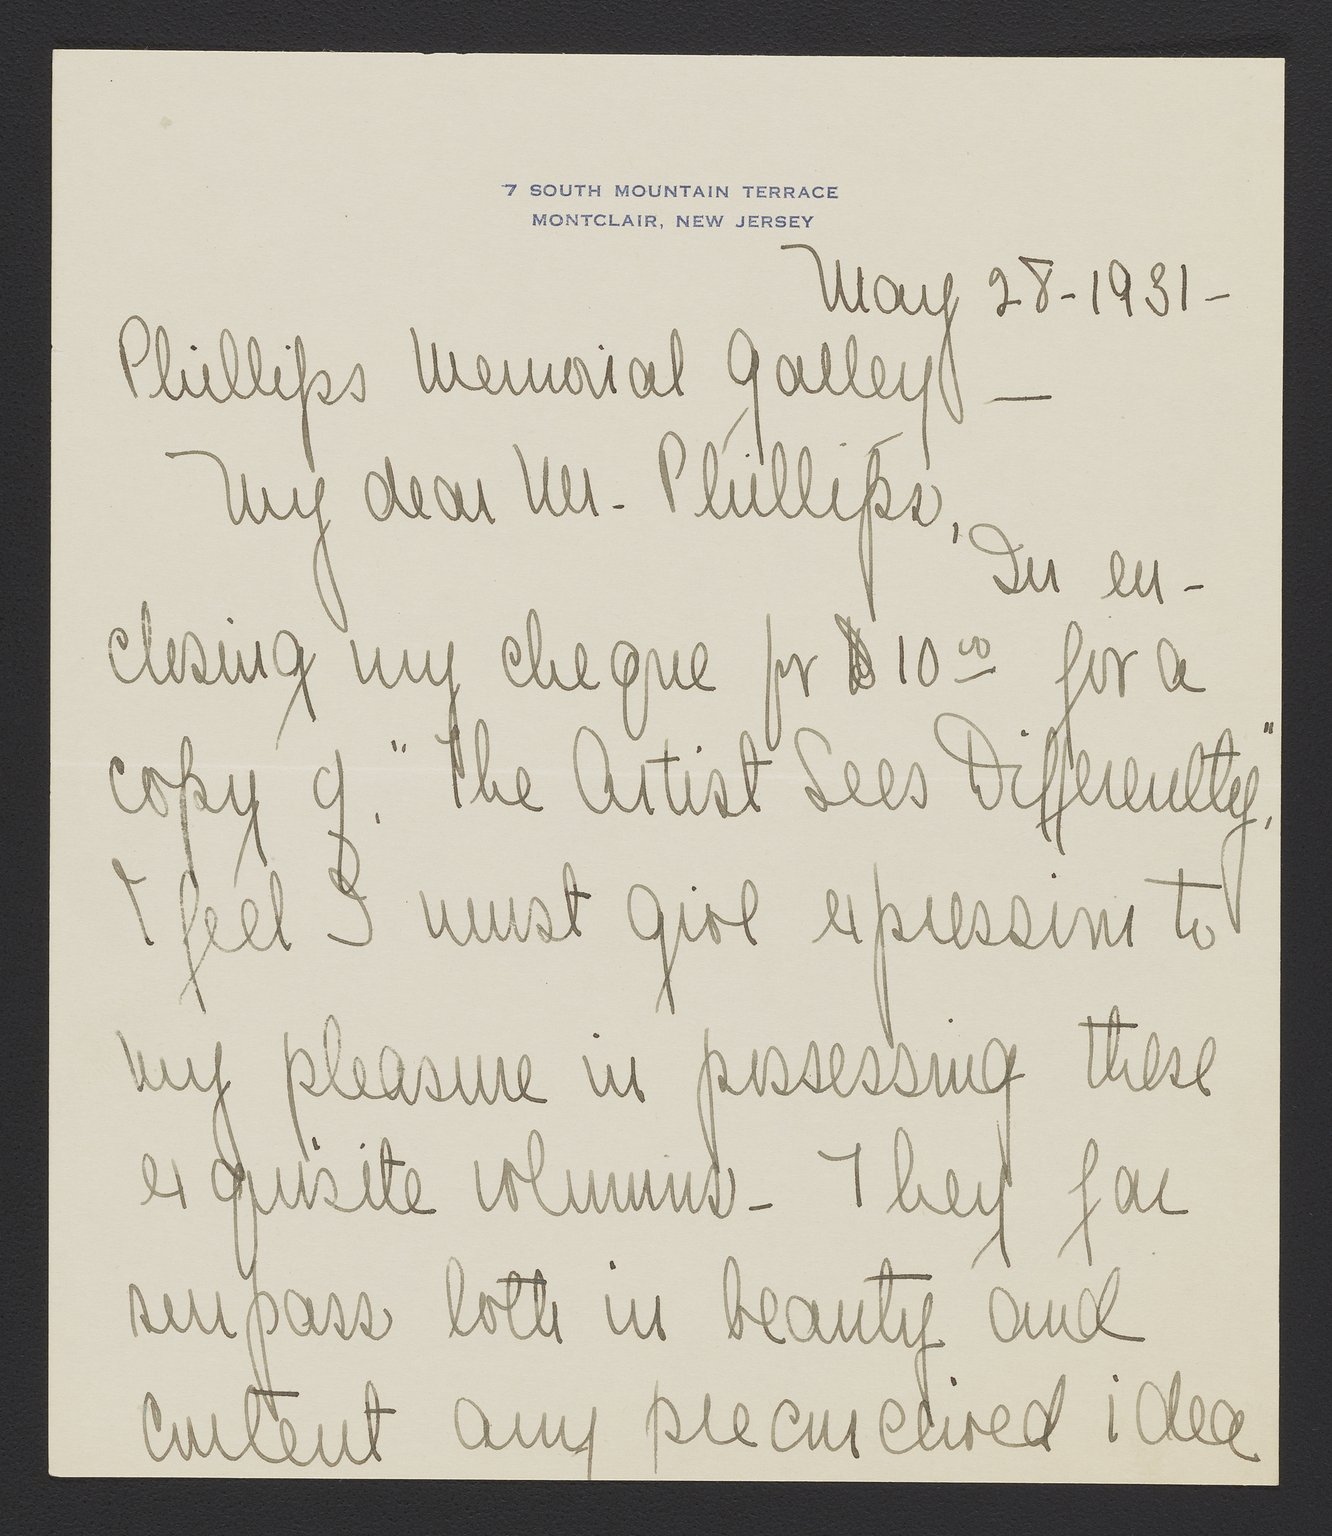 7 SOUTH MOUNTAIN TERRACE
MONTCLAIR, NEW JERSEY
May 28-1931-
Phillips Memorial Gallery —
My dear Mr. Phillips,
In en-
closing my cheque for $10.00 for a
copy of "The Artist Sees Differently,"
I feel I must give expression to
my pleasure in possessing these
exquisite volumns - They far
surpass both in beauty and
content any preconceived idea